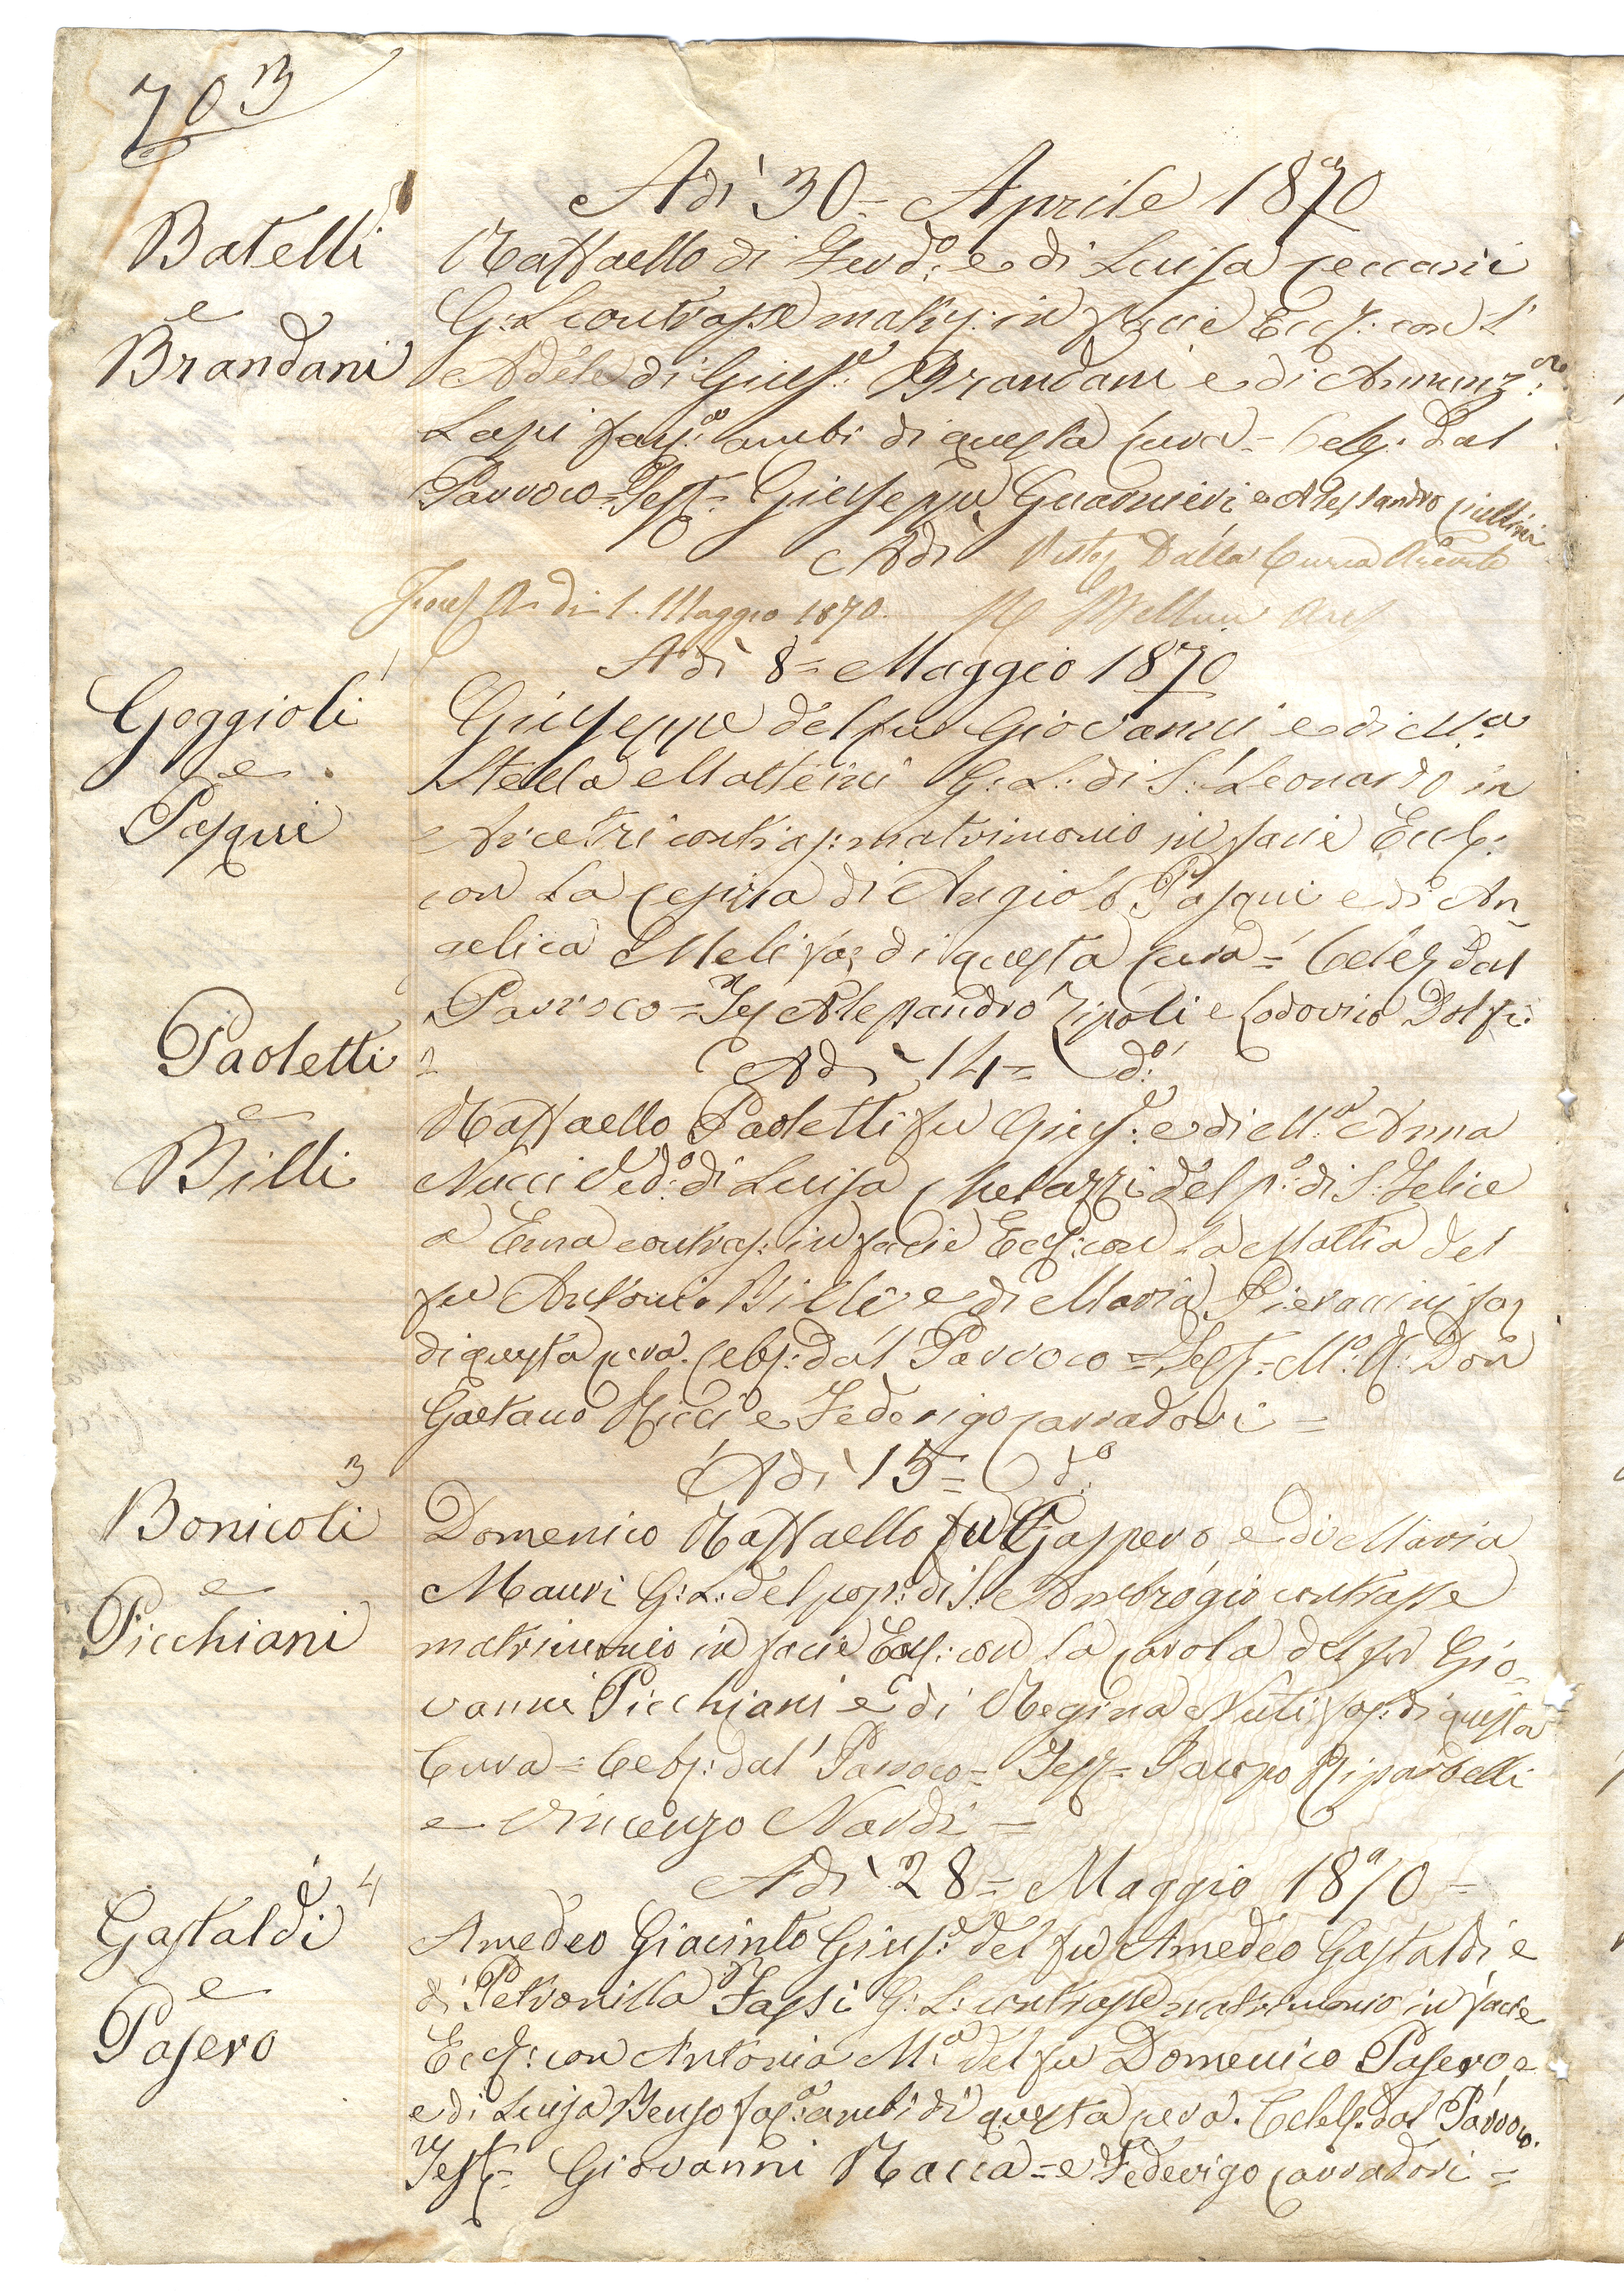 703
Adì 30= Aprile 1870
Batelli
e
Brandani
Raffaello di Ferd.º e di Luisa Ceccarii
G: L contrasse matri: in facie Eccl: con l'
Adele di Gius.e Brandani e di Annunz.a
Lapi fan.a ambi di questa Cura = Celeb. dal
Parroco = Test = Giuseppe Guarnieri e Alessandro Ciullini
Adì Visto Dalla Curia Arciv.
di 1. Maggio 1870.
Adì 8= Maggio 1870
1
Goggioli
e
Pasqui
Giuseppe del fu Giovanni e di M.a
Stella Matteini G: L: di S. Leonardo in
Arcetri contras: matrimonio in facie Eccl:
con la Cesira di Angiolo Pasqui e di An
gelica Meli fan di questa Cura = Celeb dal
Parroco = Tes Alessandro Zipoli e Lodovico Dolfi:
2
Adì 14= d.º
Paoletti
e
Billi
Raffaello Paoletti fu Gius.e e di M.a Anna
Nucci Ved.º di Luisa Melazzi del p.º di S. Felice
a Ema contras: in facie Eccl: con la Mattia del
fu Antonio Billi e di Maria Pieraccini fan
di questa Cura. Celeb: dal Parroco = Test = M.º R. Don
Gaetano Ricci e Federigo Carradori =
Adì 15= d.º
3
Bonicoli
e
Picchiani
Domenico Raffaello fu Gaspero e di Maria
Mauri G: L: del pop: di S. Ambrogio contrasse
matrimonio in facie Eccl: con la Carola del fu Gio=
vanni Picchiani e di Regina Nuti fan: di questa
Cura = Celeb: dal Parroco = Test = Jacopo Riparbelli
e Vincenzo Nardi =
Adì 28= Maggio 1870 =
4
Gastaldi
e
Pasero
Amedeo Giacinto Gius.e del fu Amedeo Gastaldi e
di Petronilla Fassi G: L: contrasse matrimonio in facie
Eccl: con Antonia M.a del fu Domenico Pasero e
e di Luisa Benso fan.a ambi di questa Cura. Celeb. dal Parroco.
Test = Giovanni Racca = e Federigo Carradori =